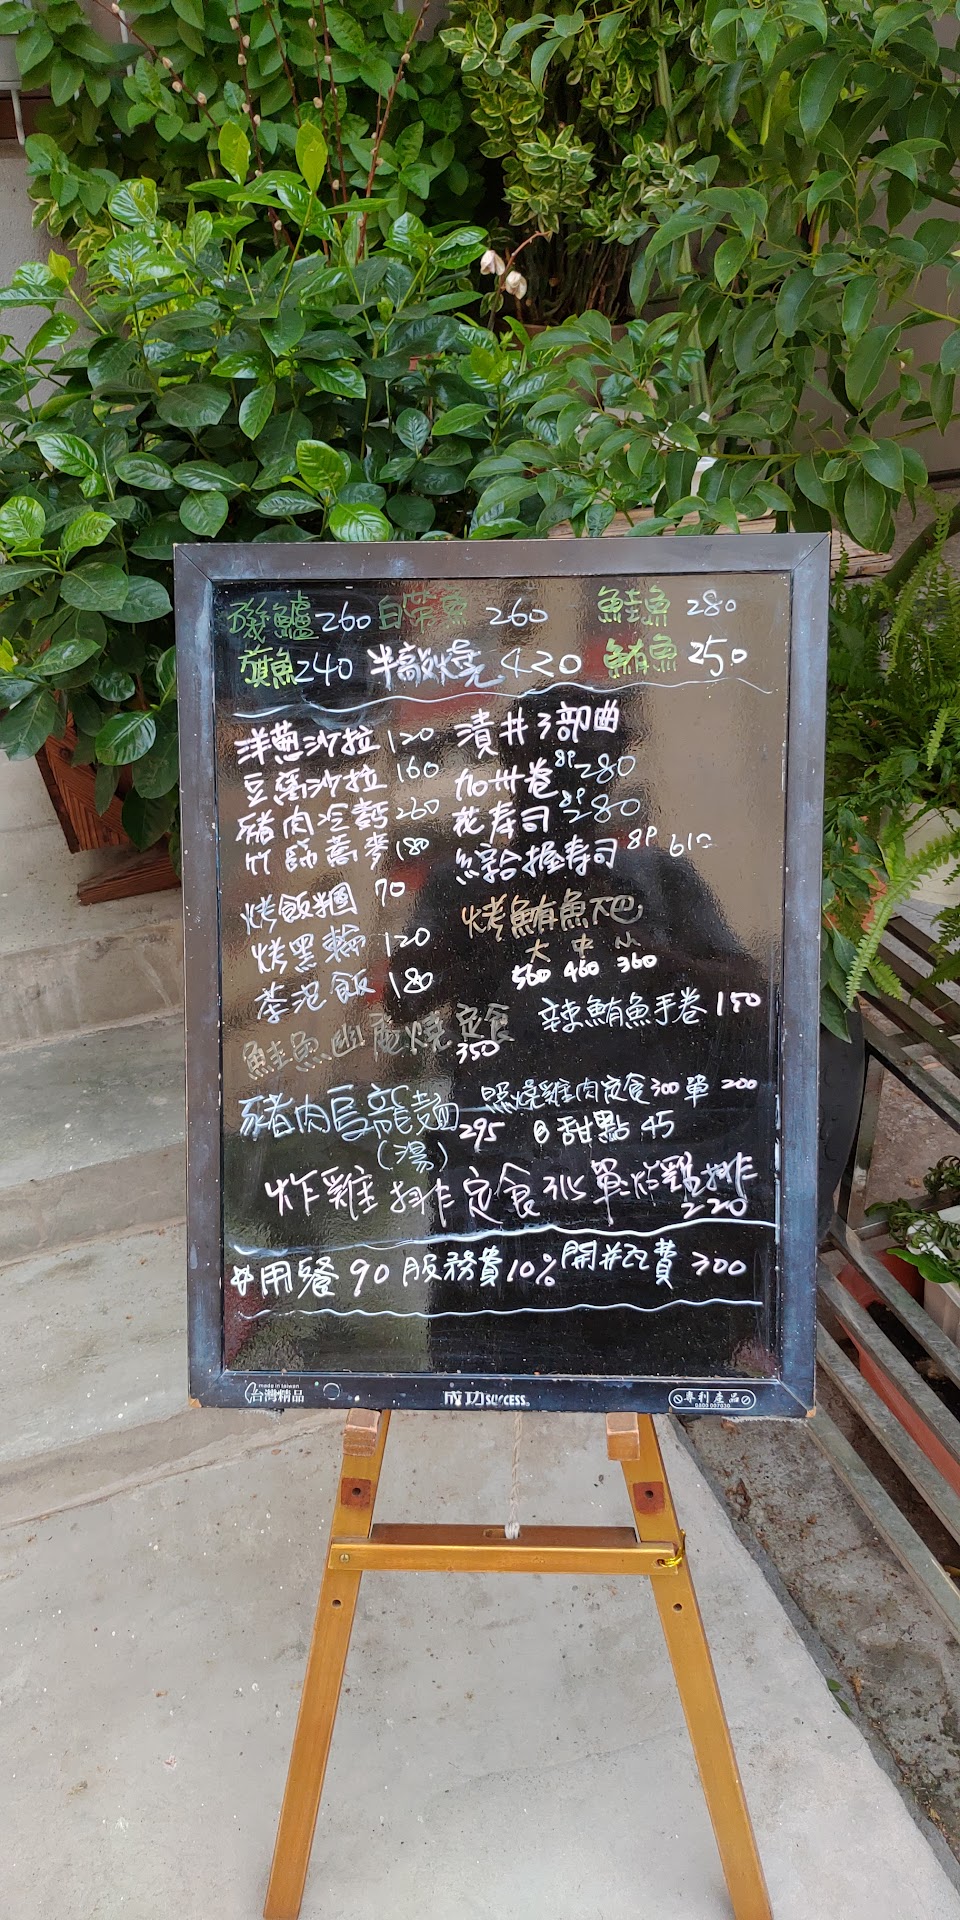 磯鱸 260 白帶魚 260 鮭魚 280
旗魚 240 半敲燒 420 鮪魚 250
洋蔥沙拉 120 漬丼3部曲
豆腐沙拉 160 加州卷 8P 280
豬肉冷麵 260 花壽司 8P 280
竹篩蕎麥 180 綜合握壽司 8P 610
烤飯糰 70 烤鮪魚下巴
烤黑輪 120 大 中 小
560 460 360
茶泡飯 180 辣鮪魚手卷 150
鮭魚幽庵燒定食 350
豬肉烏龍麵(湯) 295 照燒雞肉定食 300 單 200
甜點 45
炸雞排定食 315 單炸雞排 220
用餐 90 服務費 10% 開瓶費 300
made in taiwan
台灣精品 成功 SUCCESS 專利產品
0800 007030